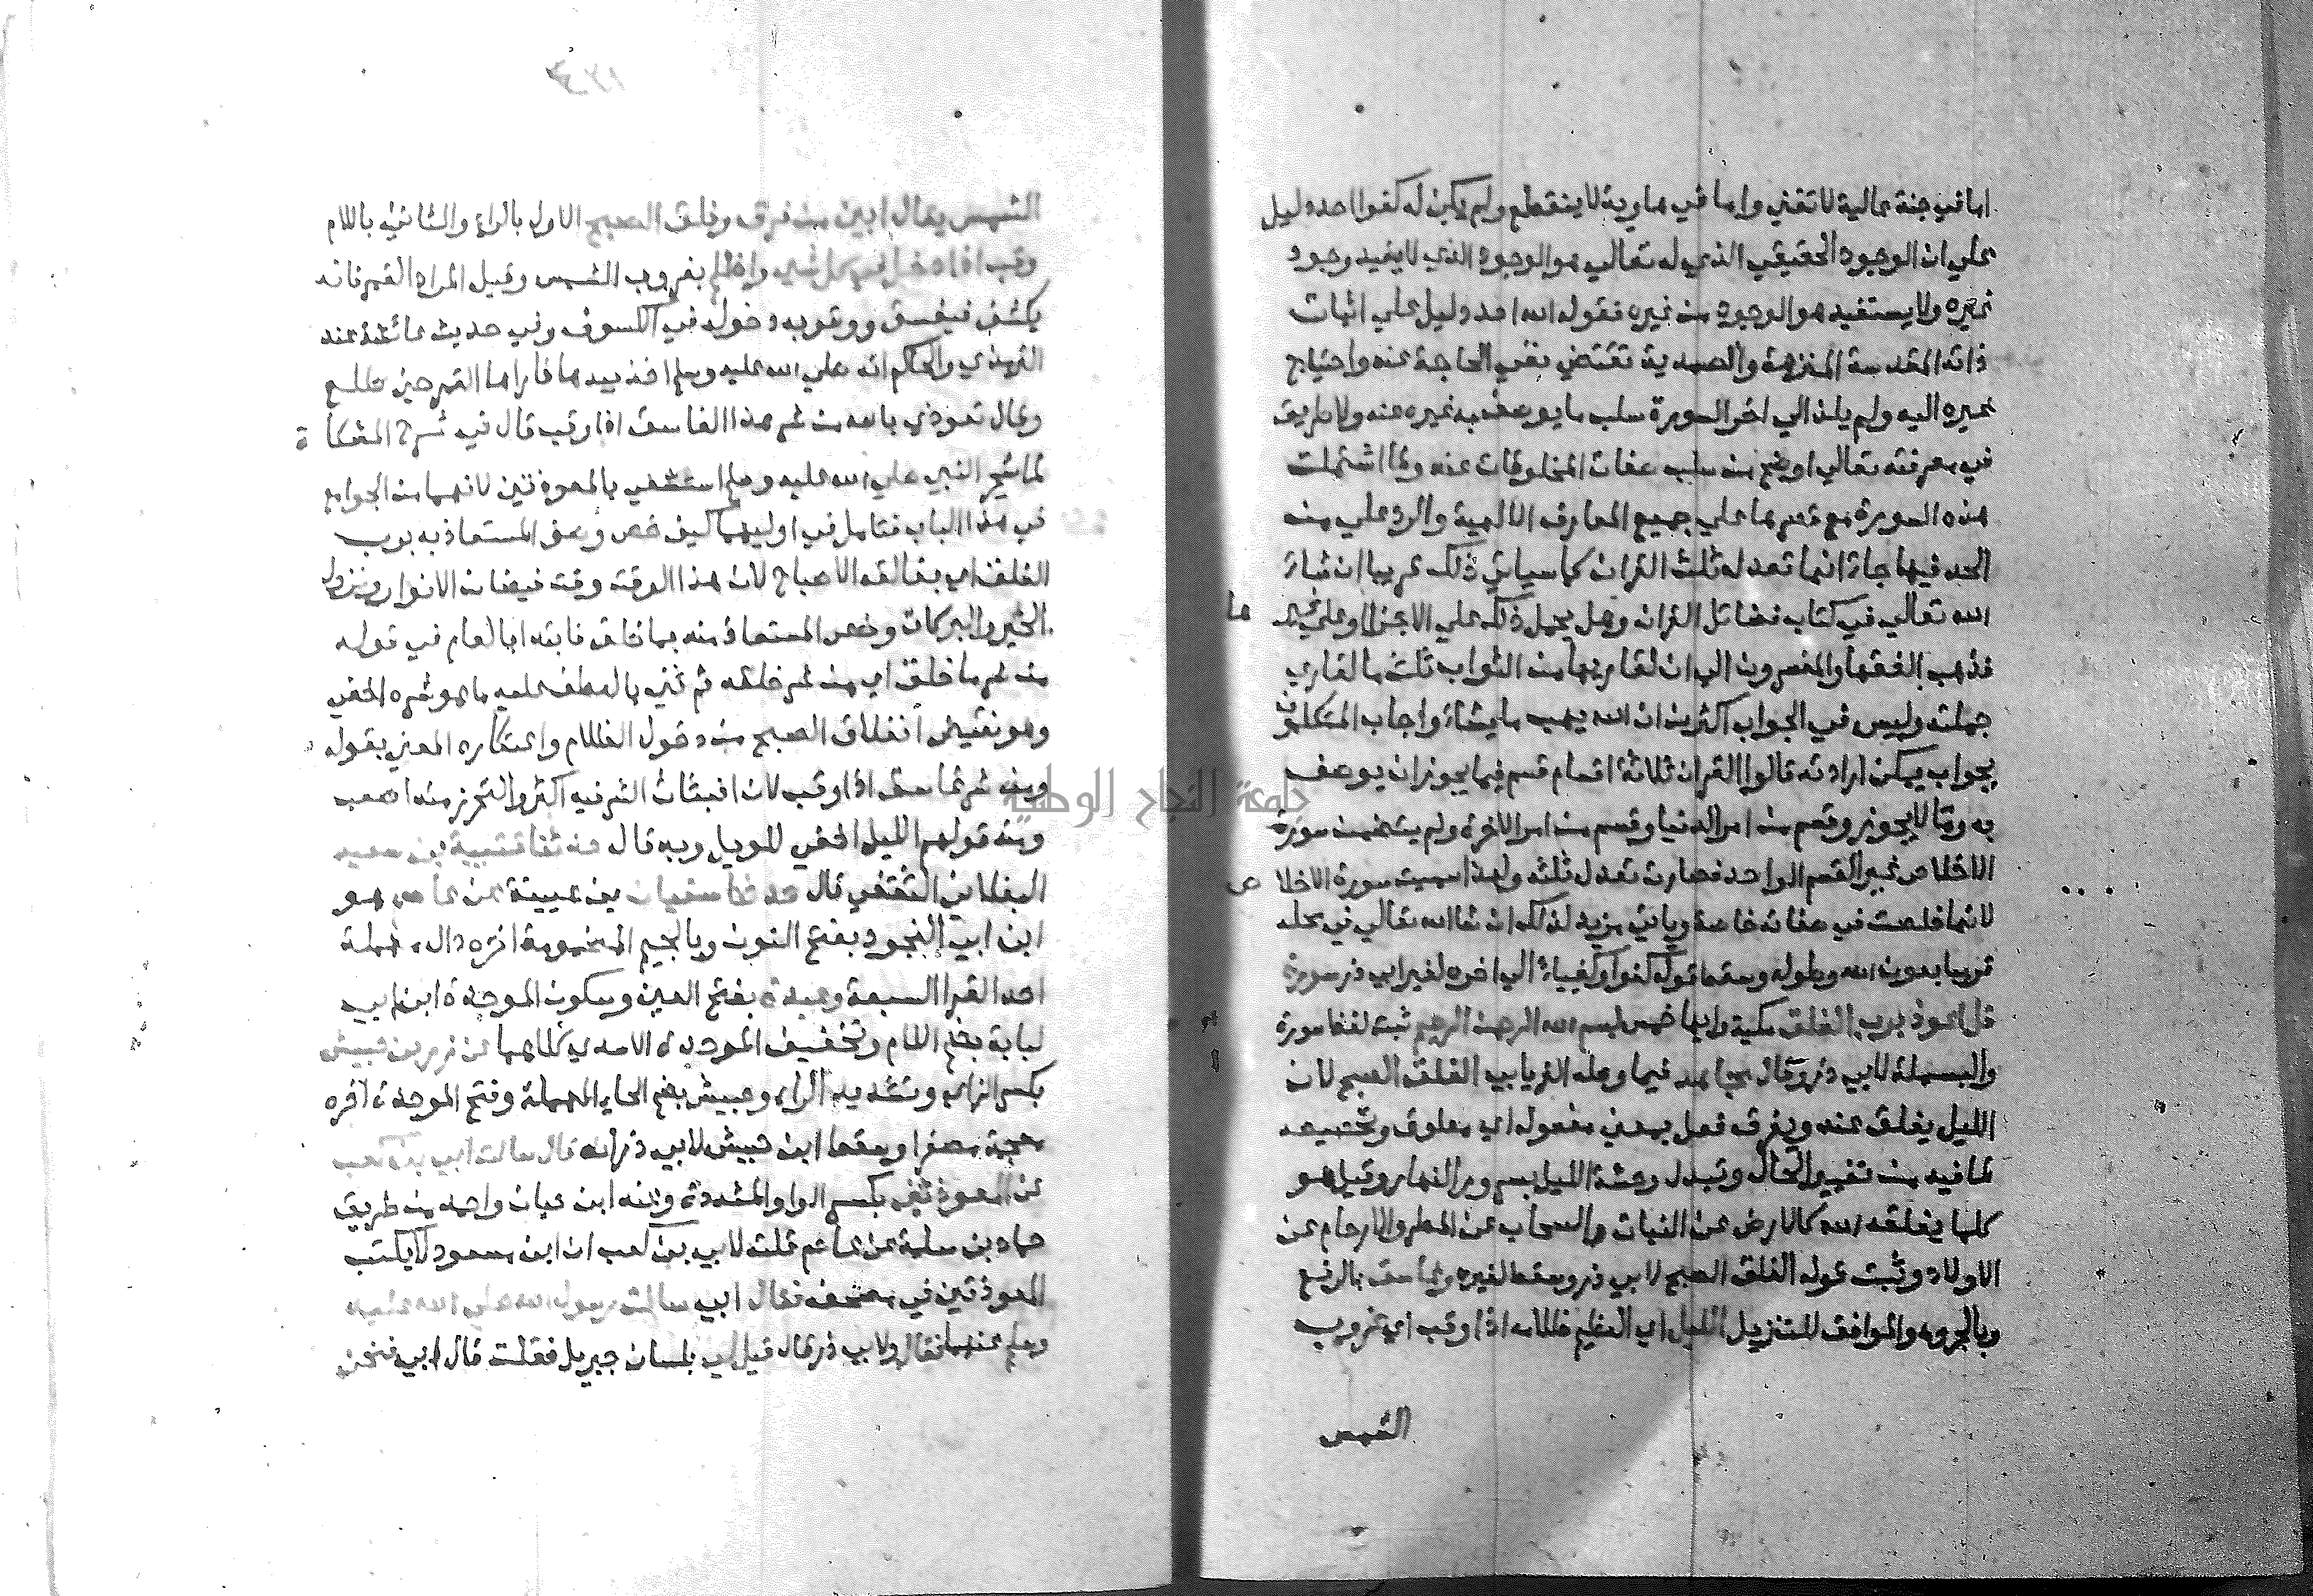 اما في جنة عالية لا تفني واما في هاوية لا ينقطع ولم يكن له كفوا احد دليل
علي ان الوجود الحقيقي الذي له تعالي هو الوجود الذي لا يفيد وجود
غيره ولا يستفيد هو الوجود من غيره فقوله الله احد دليل علي اثبات
ذاته المقدسة المنزهة والصمدية تقتضي نفي الحاجة عنه واحتياج
غيره اليه ولم يلد الي اخر السورة سلب ما يوصف به غيره عنه ولا طريق
في معرفته تعالي اوضح من سلب صفات المخلوقات عنه ولما اشتملت
هذه السورة مع قصرها علي جميع المعارف الالهية والرد علي من
الحد فيها جاء انها تعدل ثلث القران كما سياتي ذلك قريبا ان شاء
الله تعالي في كتاب فضائل القران وهل يحمل ذلك علي الاجزاء او علي غيرها
فذهب الفقها والمفسرون الي ان لقاريها من الثواب ثلث ما لقاري
جملته وليس في الجواب اكثر من ان الله يهب ما يشاء واجاب المتكلمون
بجواب يمكن ارادته قالوا القران ثلاثة اقسام قسم فيما يجوز ان يوصف
به وما لا يجوز وقسم من امر الدنيا وقسم من امر الاخرة ولم يتضمن سورة
الاخلاص غير القسم الواحد فصارت تعدل ثلثه ولهذا سميت سورة الاخلاص
لانها خلصت في صفاته خاصة وياتي مزيد لذلك ان شا الله تعالي في محله
قريبا بعون الله وطوله وسقط قوله كفوا وكفياء الي اخره لغير ابي ذر سورة
قل اعوذ برب الفلق مكية وايها خمس بسم الله الرحمن الرحيم ثبت لفظ سورة
والبسملة لابي ذر وقال مجاهد فيما وصله الفريابي الفلق الصبح لان
الليل يفلق عنه ويفرق فعل بمعني مفعول اي مفلوق وتخصيصه
لما فيه من تغيير الحال وتبدل وحشة الليل بسرور النهار وقيل هو
كلما يفلقه الله كالارض عن النبات والسحاب عن المطر والارحام عن
الاولاد وثبت قوله الفلق الصبح لابي ذر وسقط لغيره وغاسق بالرفع
وبالجر وهو الموافق للتنزيل الليل اي العظيم ظلامه اذا وقب اي غروب
الشمس
الشمس يقال ابين من فرق وفلق الصبح الاول بالراء والثاني باللام
وقب اذا دخل في كل شيء واظلم بغروب الشمس وقيل المراد القمر فانه
يكسف فيغسق ووقوبه دخوله في الكسوف وفي حديث عائشة عند
الترمذي والحاكم انه صلي الله عليه وسلم اخذ بيدها فاراها القمر حين طلع
وقال تعوذي بالله من شر هذا الغاسق اذا وقب قال في شرح المشكاة
لما سحر النبي صلي الله عليه وسلم استشفي بالمعوذتين لانهما من الجوامع
في هذا الباب فتامل في اوليهما كيف خص وصف المستعاذ به برب
الفلق اي بفالق الاصباح لان هذا الوقت وقت فيضان الانوار ونزول
الخير والبركات وخص المستعاذ منه بما خلق فابتدا بالعام في قوله
من شر ما خلق اي من شر خلقه ثم ثني بالعطف عليه ما هو شره اخفي
وهو نقيض انفلاق الصبح من دخول الظلام واعتكاره المعني بقوله
ومن شر غاسق اذا وقب لان انبثاث الشر فيه اكثر والتحرز منه اصعب
ومنه قولهم الليل اخفي للويل وبه قال حدثنا قتيبة بن سعيد
البغلاني الثقفي قال حدثنا سفيان بن عيينة عن عاصم هو
ابن ابي النجود بفتح النون وبالجيم المضمومة اخره دال مهملة
احد القرا السبعة وعبدة بفتح العين وسكون الموحدة ابن ابي
لبابة بضم اللام وتخفيف الموحدة الاسدي كلاهما عن زر بن حبيش
بكسر الزاي وتشديد الراء وحبيش بضم الحاء المهملة وفتح الموحدة اخره
معجمة مصغرا وسقط ابن حبيش لابي ذر انه قال سالت ابي بن كعب
عن المعوذتين بكسر الواو المشددة وعند ابن حبان واحمد من طريق
حماد بن سلمة عن عاصم قلت لابي بن كعب ان ابن مسعود لا يكتب
المعوذتين في مصحفه فقال ابي سالت رسول الله صلي الله عليه
وسلم عنهما فقال ولابي ذر قال قيل لي بلسان جبريل فقلت قال ابي فنحن